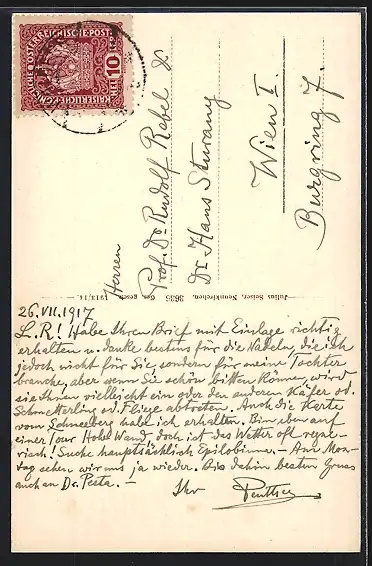 KAISERLICHE KGNIGLICHE ÖSTERREICHISCHE POST
10 HELLER
Herren
Prof. Dr. Rudolf Rebel &
Dr. Hans Sturany
Wien I.
Burgring 7.
Julius Seiser, Neunkirchen. 3635 Ges. gesch. 1913/14.
26.VII.1917
L. R.! Habe Ihren Brief mit Einlage richtig
erhalten u. danke bestens für die Nadeln, die ich
jedoch nicht für Sie, sondern für meine Tochter
brauche, aber wenn Sie schön bitten können, wird
sie Ihnen vielleicht ein oder den anderen Käfer od.
Schmetterling od. Fliege abtreten. Auch die Karte
vom Schneeberg habe ich erhalten. Bin eben auf
einer Tour Hohe Wand, doch ist das Wetter oft regne-
risch! Suche hauptsächlich Epilobium. - Am Mon-
tag sehen wir uns ja wieder. Bis dahin besten Gruss
auch an Dr. Pesta. -
Ihr